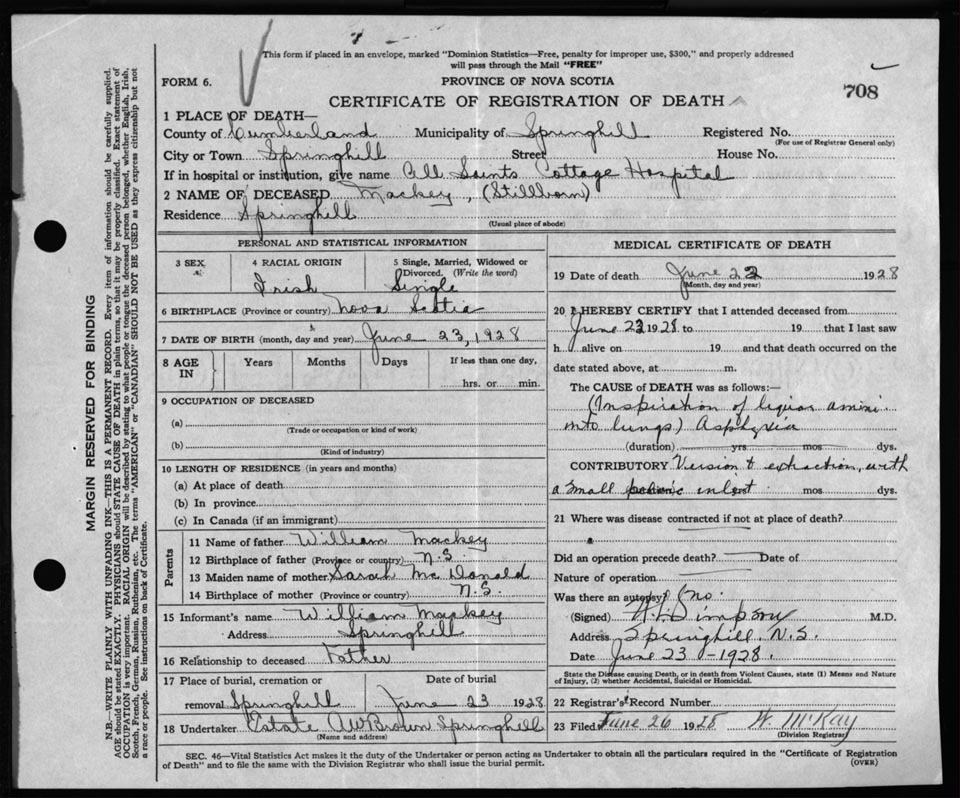 This form if placed in an envelope, marked "Dominion Statistics—Free, penalty for improper use, $300," and properly addressed
will pass through the Mail "FREE"
FORM 6.
PROVINCE OF NOVA SCOTIA
CERTIFICATE OF REGISTRATION OF DEATH
708
1 PLACE OF DEATH—
County of Cumberland Municipality of Springhill Registered No.
(For use of Registrar General only)
City or Town Springhill Street House No.
If in hospital or institution, give name All Saints Cottage Hospital
2 NAME OF DECEASED Mackey, (Stillborn)
Residence Springhill
(Usual place of abode)
PERSONAL AND STATISTICAL INFORMATION
3 SEX 4 RACIAL ORIGIN 5 Single, Married, Widowed or
Divorced. (Write the word)
Irish Single
6 BIRTHPLACE (Province or country) Nova Scotia
7 DATE OF BIRTH (month, day and year) June 23, 1928
8 AGE IN Years Months Days If less than one day,
hrs. or min.
9 OCCUPATION OF DECEASED
(a)
(Trade or occupation or kind of work)
(b)
(Kind of industry)
10 LENGTH OF RESIDENCE (in years and months)
(a) At place of death
(b) In province
(c) In Canada (if an immigrant)
Parents
11 Name of father William Mackey
12 Birthplace of father (Province or country) N.S.
13 Maiden name of mother Sarah McDonald
14 Birthplace of mother (Province or country) N.S.
15 Informant's name William Mackey
Address Springhill
16 Relationship to deceased Father
17 Place of burial, cremation or Date of burial
removal Springhill June 23 1928
18 Undertaker Estate AW Brown Springhill
(Name and address)
MEDICAL CERTIFICATE OF DEATH
19 Date of death June 23 1928
(Month, day and year)
20 I HEREBY CERTIFY that I attended deceased from
June 23 1928 to 19 that I last saw
h alive on 19 and that death occurred on the
date stated above, at m.
The CAUSE of DEATH was as follows:—
(Inspiration of liquor amini
into lungs) Asphyxia
(duration) yrs mos dys.
CONTRIBUTORY Version & extraction, with
a small pelvic inlet mos dys.
21 Where was disease contracted if not at place of death?
Did an operation precede death? Date of
Nature of operation
Was there an autopsy? no
(Signed) Simpson M.D.
Address Springhill N.S.
Date June 23 - 1928.
State the Disease causing Death, or in death from Violent Causes, state (1) Means and Nature
of Injury, (2) whether Accidental, Suicidal or Homicidal.
22 Registrar's Record Number
23 Filed June 26 1928 W. McKay
(Division Registrar)
SEC. 46—Vital Statistics Act makes it the duty of the Undertaker or person acting as Undertaker to obtain all the particulars required in the "Certificate of Registration
of Death" and to file the same with the Division Registrar who shall issue the burial permit.
(OVER)
MARGIN RESERVED FOR BINDING
N.B.—WRITE PLAINLY WITH UNFADING INK—THIS IS A PERMANENT RECORD. Every item of information should be carefully supplied.
AGE should be stated EXACTLY. PHYSICIANS should STATE CAUSE OF DEATH in plain terms, so that it may be properly classified. Exact statement of
OCCUPATION is very important. RACIAL ORIGIN will be described by stating to what people or tongue the deceased person belonged, whether English, Irish,
Scotch, French, German, Russian, Ruthenian, etc. The terms "AMERICAN" or "CANADIAN" SHOULD NOT BE USED as they express citizenship but not
a race or people. See instructions on back of Certificate.